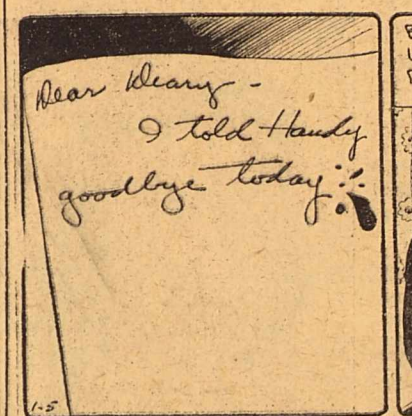 Dear Deary -
I told Handy
goodbye today
1-5